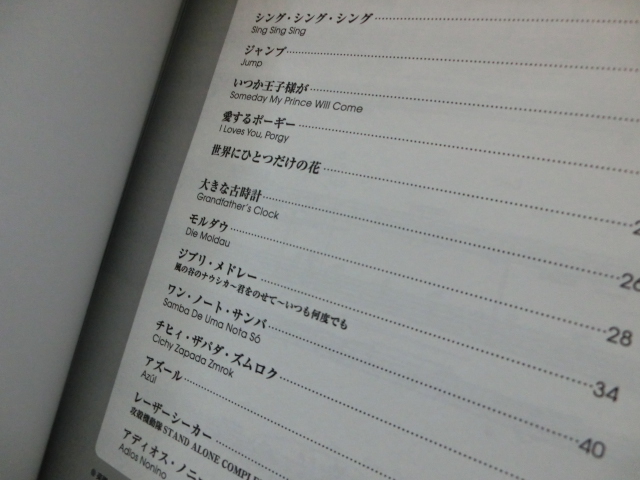 シング・シング・シング
Sing Sing Sing
ジャンプ
Jump
いつか王子様が
Someday My Prince Will Come
愛するポーギー
I Loves You, Porgy
世界にひとつだけの花
大きな古時計
Grandfather's Clock
26
モルダウ
Die Moldau
28
ジブリ・メドレー
風の谷のナウシカ〜君をのせて〜いつも何度でも
34
ワン・ノート・サンバ
Samba De Uma Nota Só
40
チヒィ・ザパダ・ズムロク
Cichy Zapada Zmrok
アズール
Azúl
レーザーシーカー
攻殻機動隊 STAND ALONE COMPLE
アディオス・ノニ
Adios Nonino